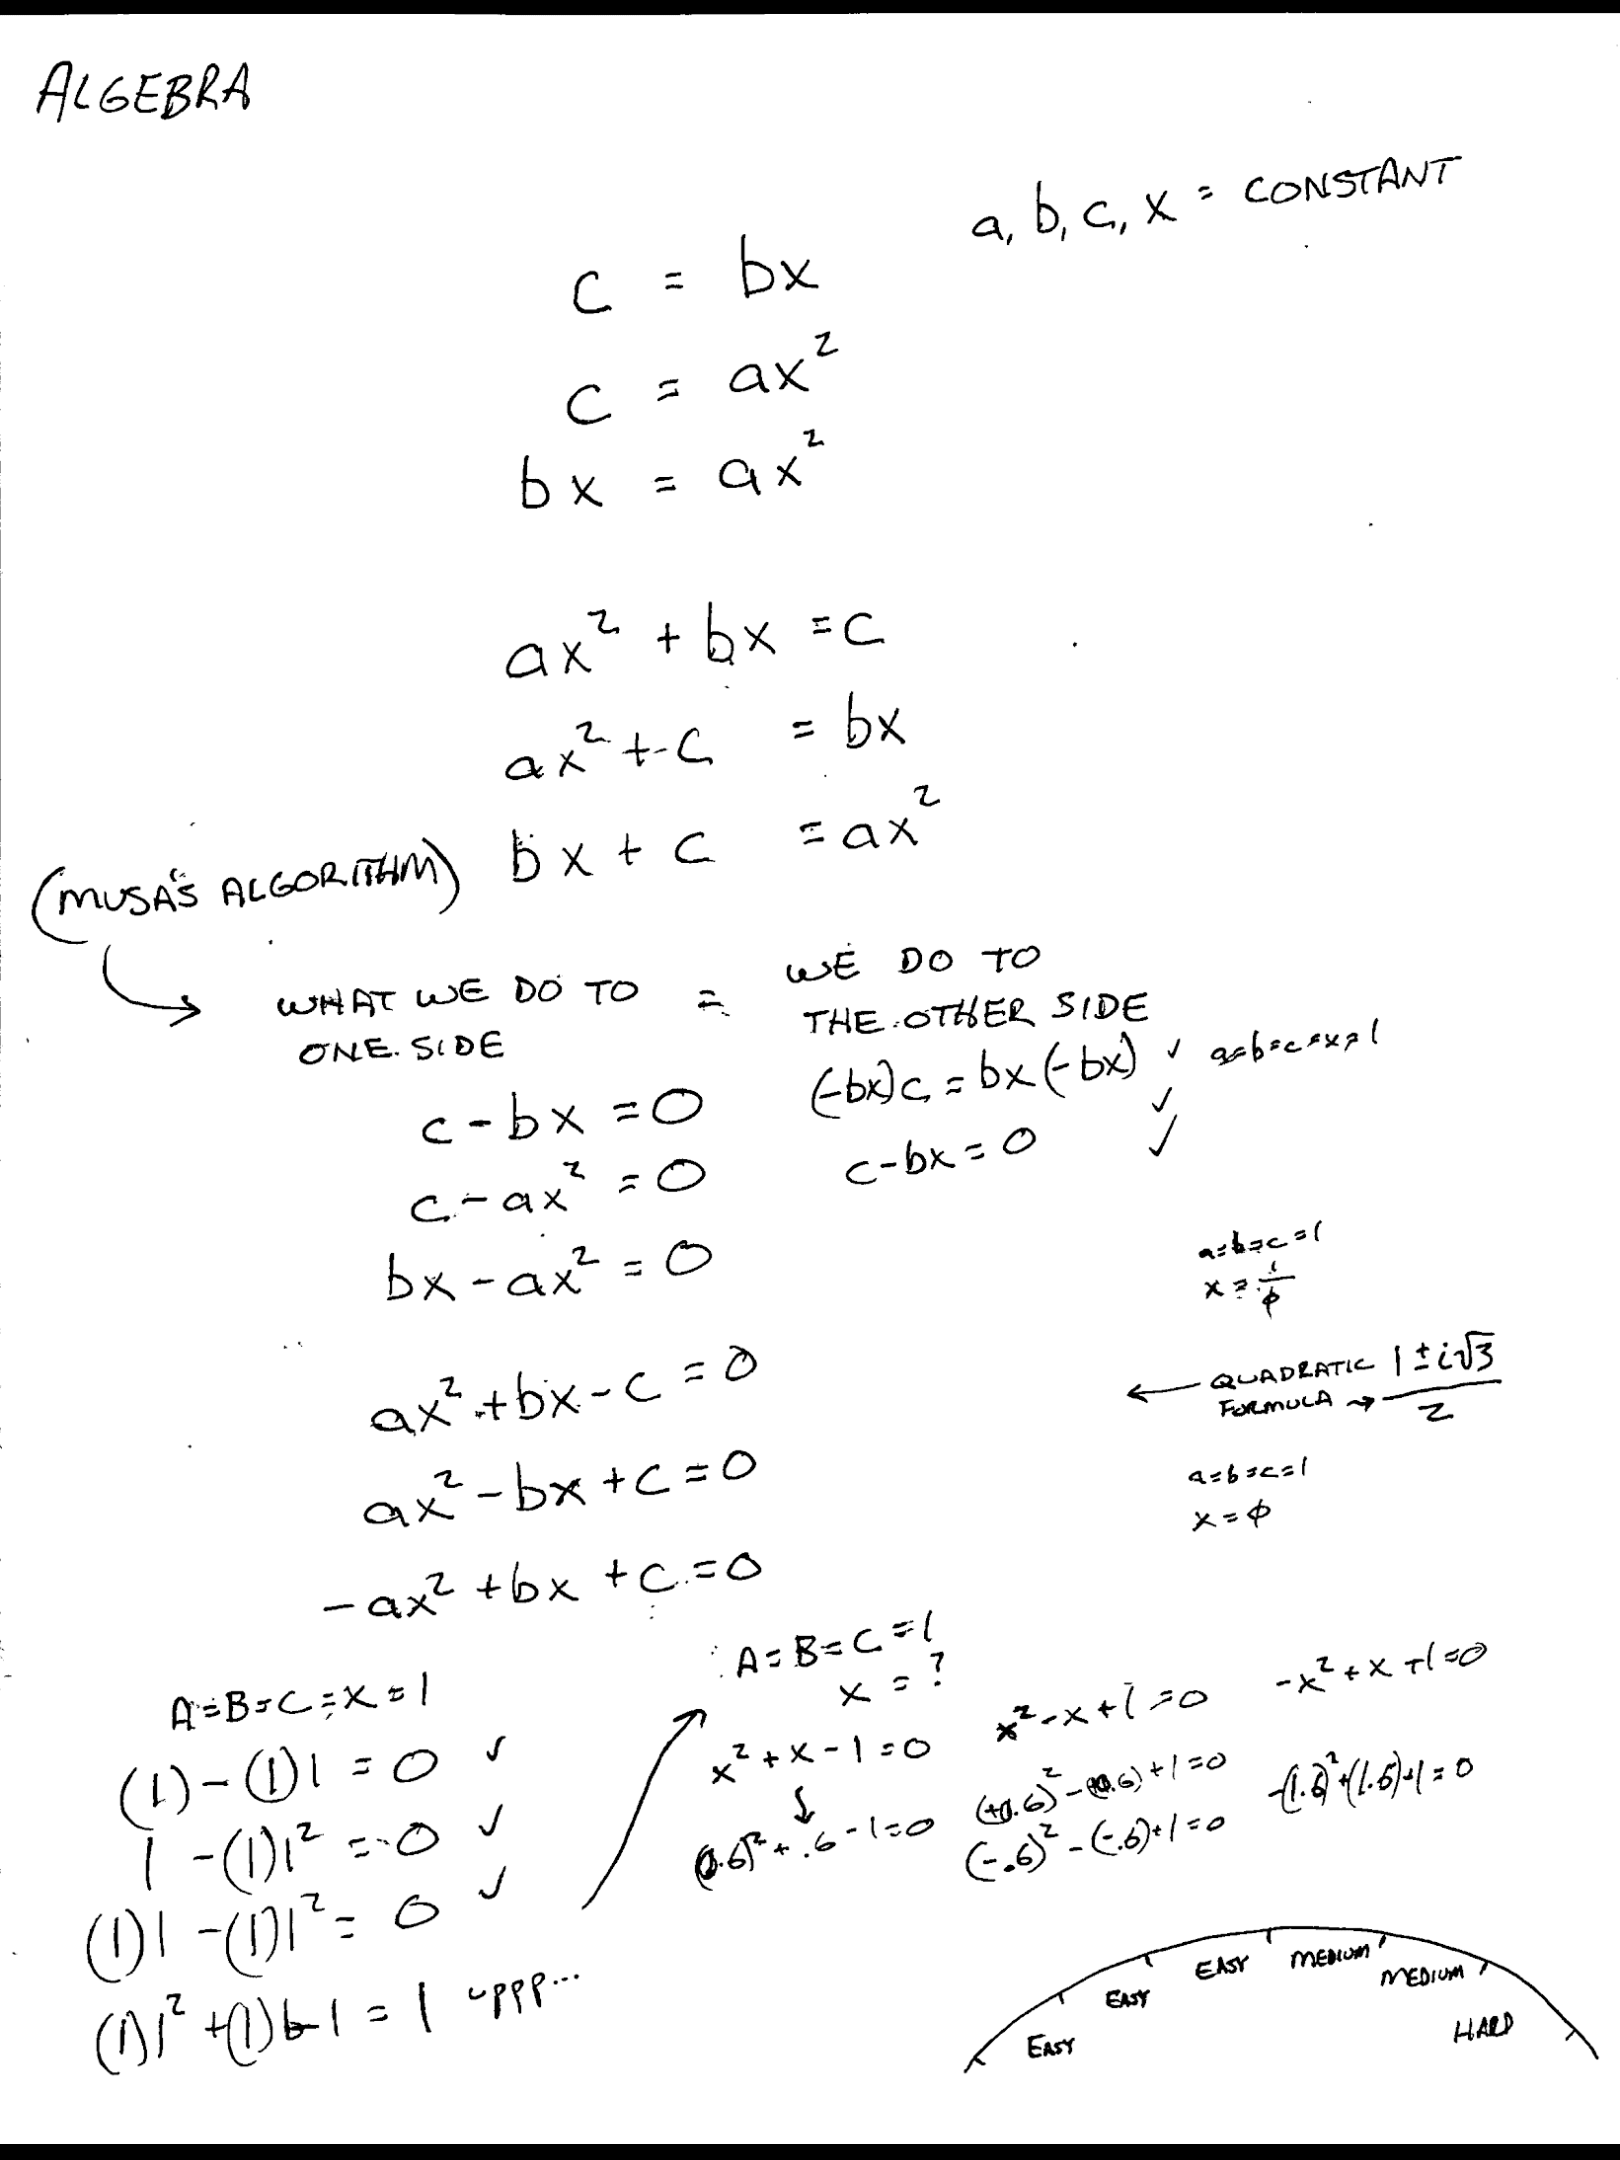 ALGEBRA
a, b, c, x = CONSTANT
c = bx
c = ax²
bx = ax²
ax² + bx = c
ax² + c = bx
(MUSA'S ALGORITHM) bx + c = ax²
WHAT WE DO TO = WE DO TO
ONE SIDE THE OTHER SIDE
(-bx)c = bx(-bx) ✓ a=b=c=x=1
c - bx = 0 ✓
c - bx = 0 ✓
c - ax² = 0
bx - ax² = 0
a=b=c=1
x = 1/φ
ax² + bx - c = 0
← QUADRATIC FORMULA → (1 ± i√3)/2
ax² - bx + c = 0
a=b=c=1
x = φ
-ax² + bx + c = 0
A=B=C=X=1
(1)-(1)1 = 0 ✓
1 -(1)1² = 0 ✓
(1)1 -(1)1² = 0 ✓
(1)1² +(1)1-1 = 1 uppp...
A=B=C=1
x = ?
x² + x - 1 = 0
(0.6)² + .6 - 1 = 0
x² - x + 1 = 0
(+0.6)² - (0.6) + 1 = 0
(-.6)² - (-.6) + 1 = 0
-x² + x + 1 = 0
-(1.6)² + (1.6) + 1 = 0
EASY
EASY
EASY
MEDIUM
MEDIUM
HARD